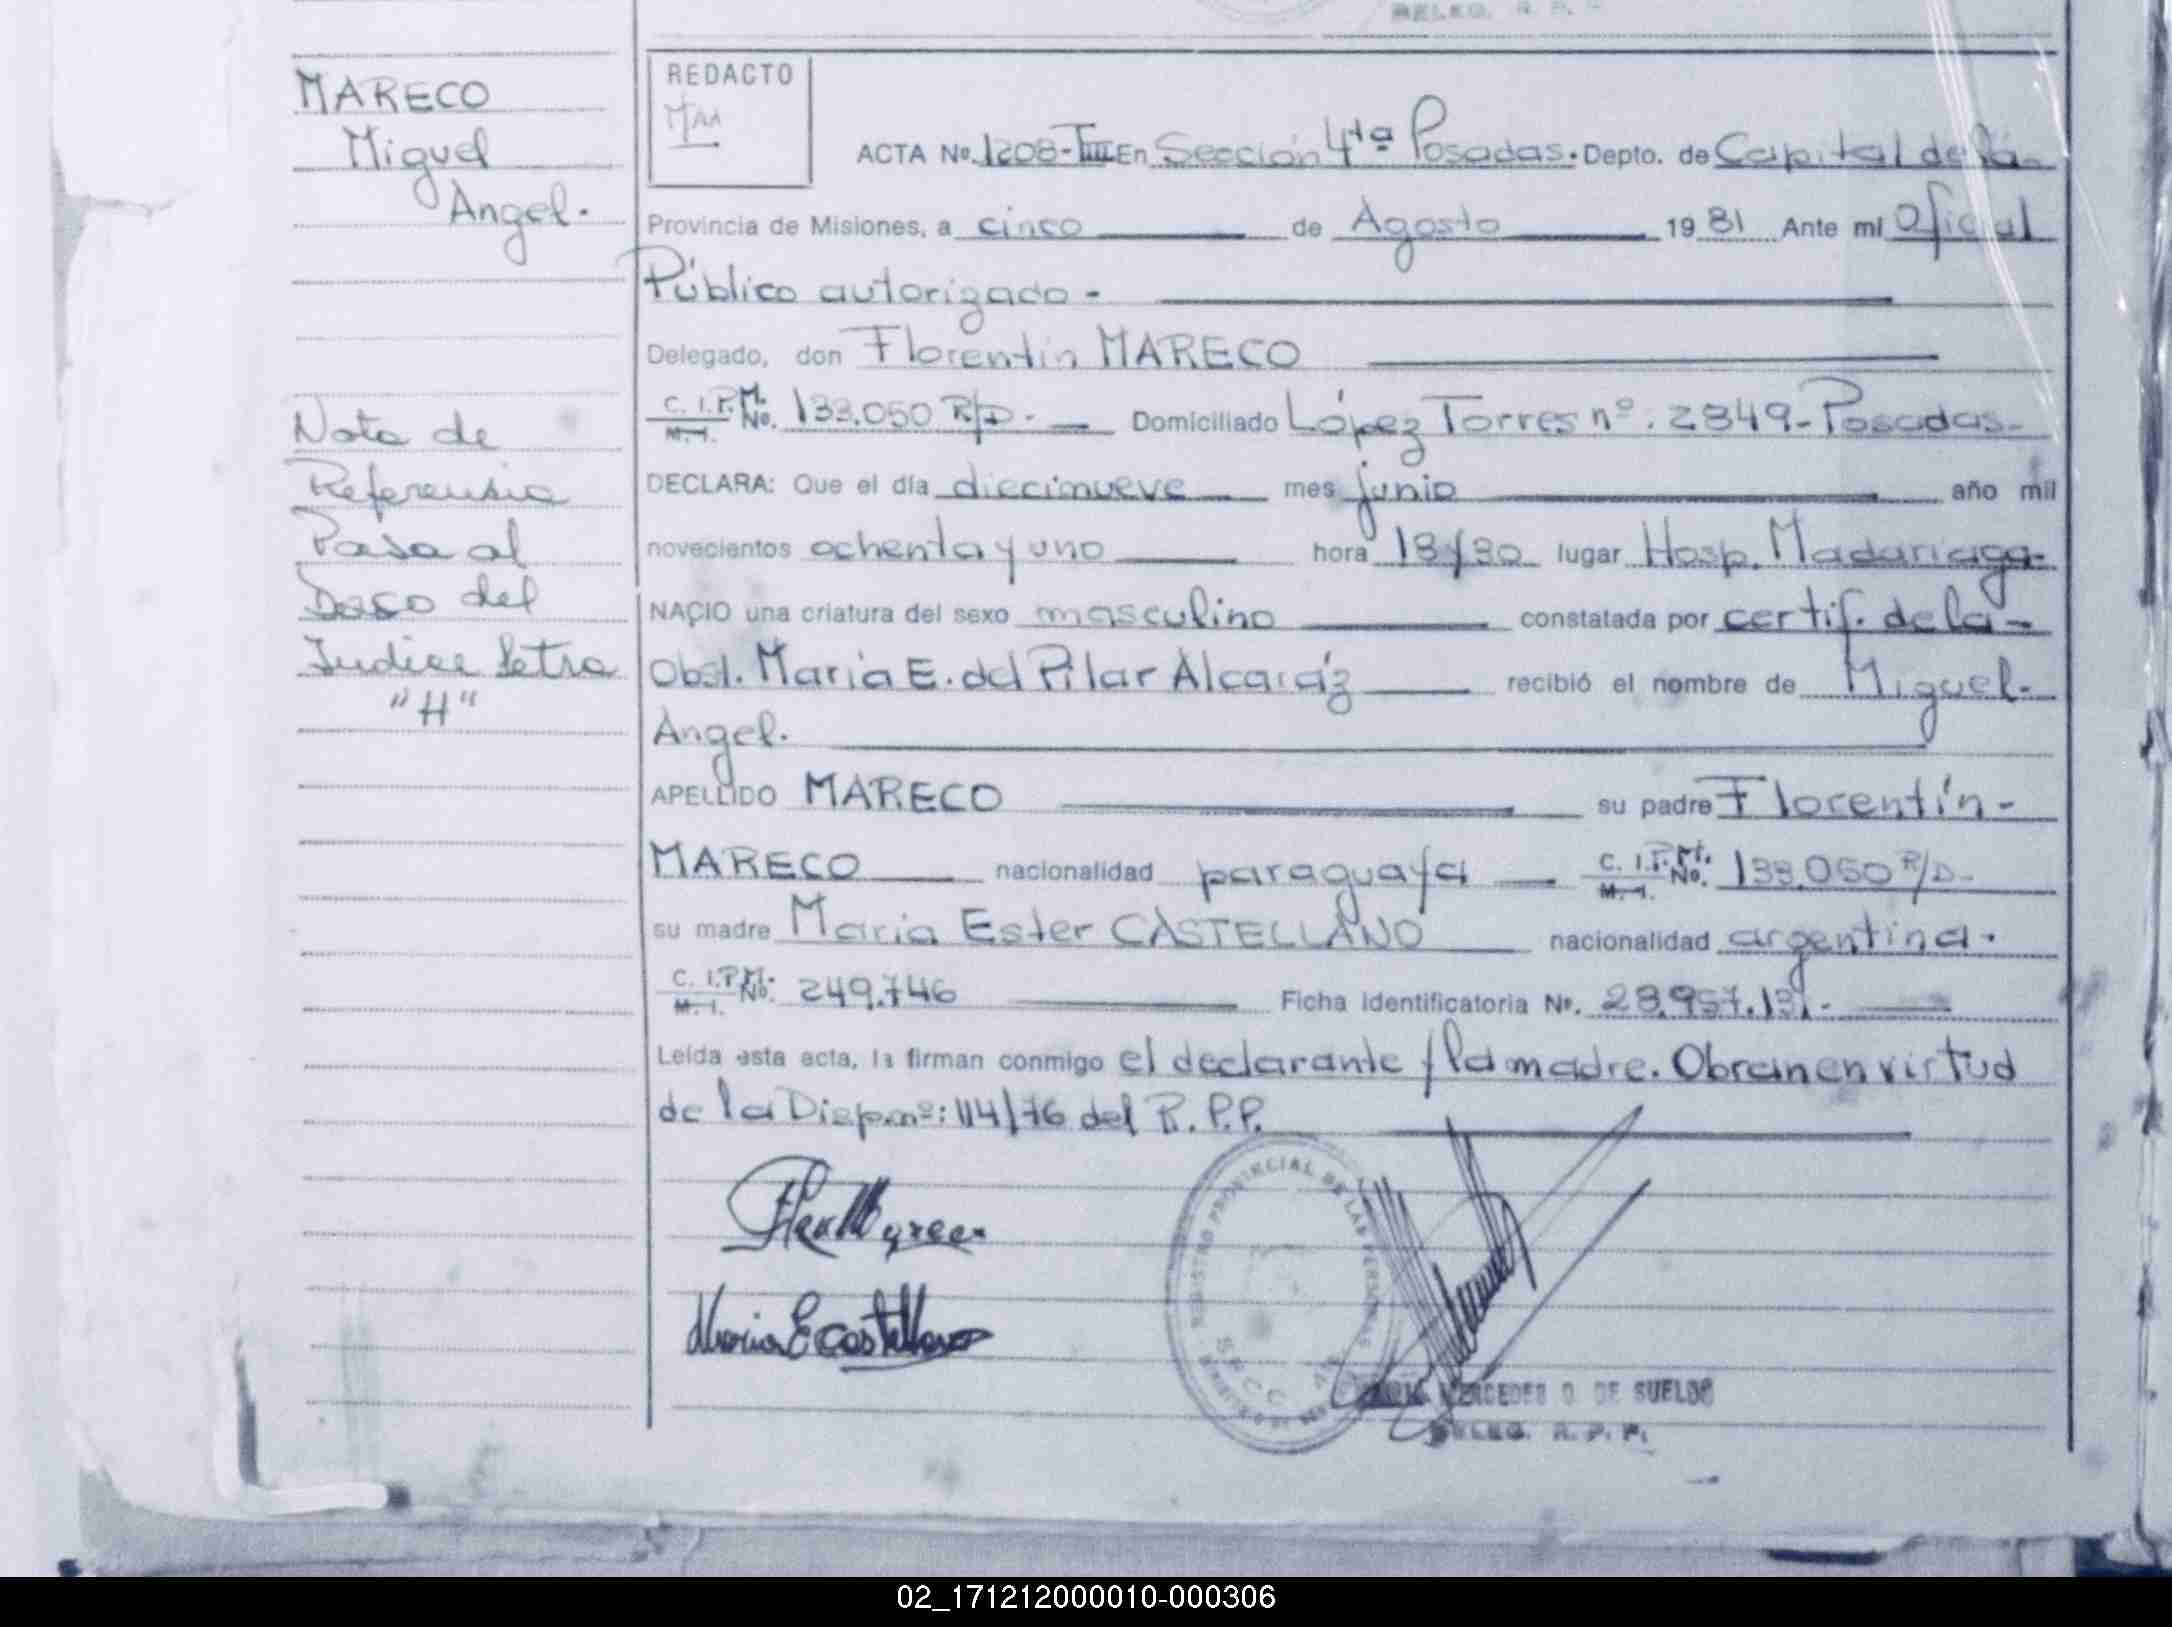 DELEG. R. P. P.
MARECO
Miguel
Angel.
Nota de
Referensia
Pasa al
Dorso del
Indice letra
"H"
REDACTO
MAA
ACTA No. 1208-TIII En Sección 4ta Posadas. Depto. de Capital de la
Provincia de Misiones, a cinco de Agosto 1981 Ante mi Oficial
Público autorizado -
Delegado, don Florentin MARECO
C. I.P.M. M.I. No. 133.050 R/D. - Domiciliado López Torres nº: 2849 - Posadas -
DECLARA: Que el día diecinueve mes junio año mil
novecientos ochenta y uno hora 18/30 lugar Hosp. Madariaga-
NACIO una criatura del sexo masculino constatada por certif. de la -
Obst. María E. del Pilar Alcaráz recibió el nombre de Miguel-
Angel.
APELLIDO MARECO su padre Florentín -
MARECO nacionalidad paraguaya C. I.P.M. M.I. No. 133.050 R/D -
su madre Maria Ester CASTELLANO nacionalidad argentina.
C. I.P.M. M.I. No. 249.746 Ficha identificatoria No. 28.957.131. -
Leída esta acta, la firman conmigo el declarante y la madre. Obran en virtud
de la Disp. nº: 114/76 del R. P. P.
Maria E Castellano
REGISTRO PROVINCIAL DE LAS PERSONAS
SECC. 4ta
MARIA MERCEDES O. DE SUELDO
DELEG. R. P. P.
02_171212000010-000306